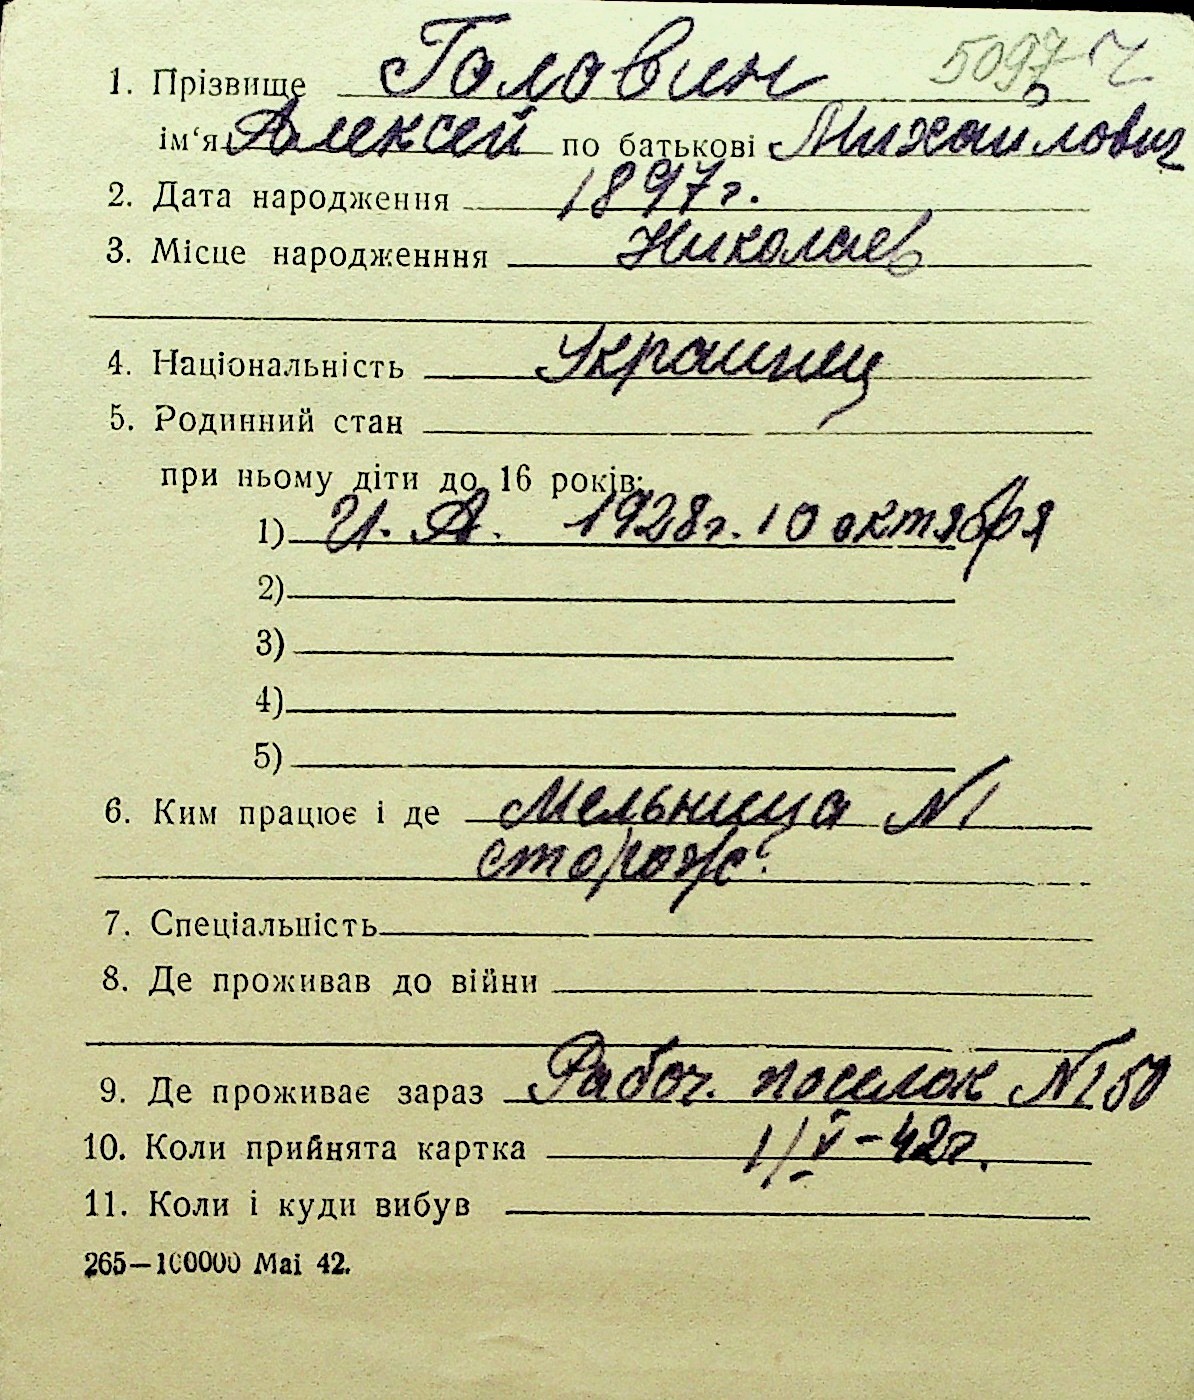 1. Прізвище Головин 5097
ім‘я Алексей по батькові Михайлович
2. Дата народження 1897г.
3. Місце народженння Николаев
4. Національність Украинец
5. Родинний стан
при ньому діти до 16 років:
1) И. А. 1928г. 10 октября
2)
3)
4)
5)
6. Ким працює і де Мельница №1
сторож
7. Спеціальність
8. Де проживав до війни
9. Де проживає зараз Рабоч. поселок №150
10. Коли прийнята картка 1/V-42г.
11. Коли і куди вибув
265—100000 Mai 42.